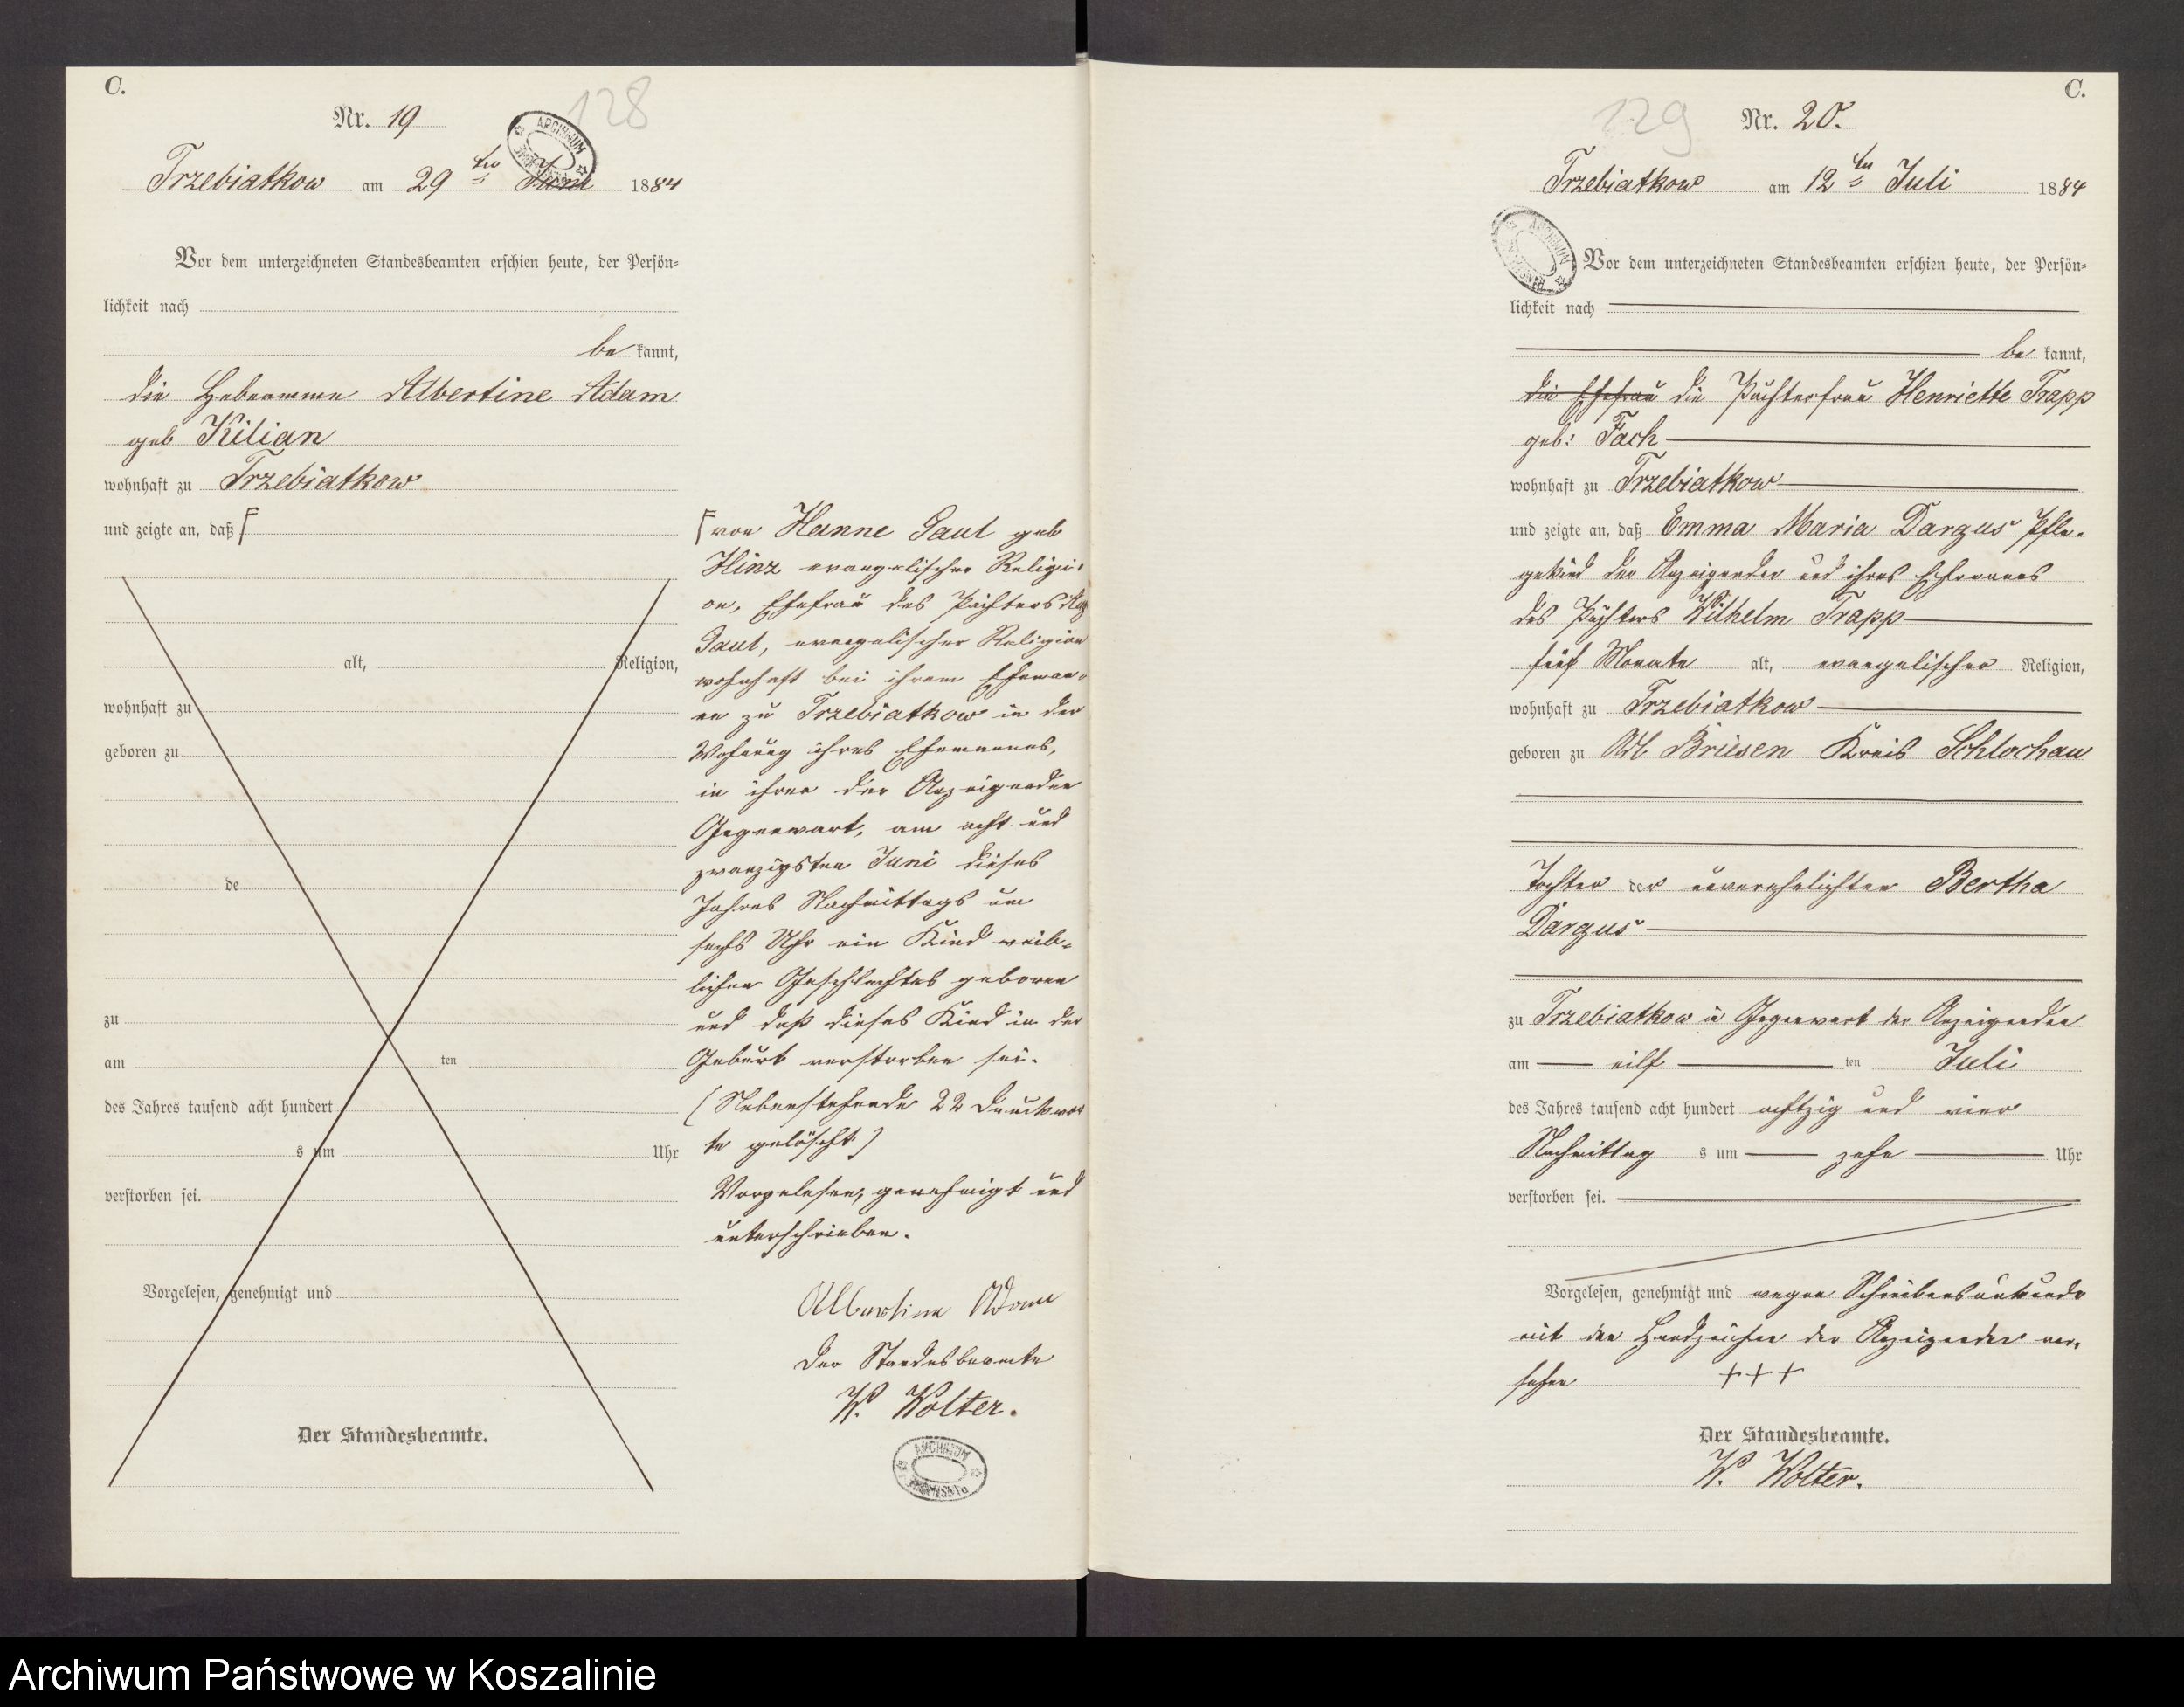 C.
Nr. 19
128
Trzebiatkow am 29 ten Juni 1884
Vor dem unterzeichneten Standesbeamten erschien heute, der Persön-
lichkeit nach
be kannt,
die Hebeamme Albertine Adam
geb Kilian
wohnhaft zu Trzebiatkow
und zeigte an, daß
alt, Religion,
wohnhaft zu
geboren zu
de
zu
am ten
des Jahres tausend acht hundert
s um Uhr
verstorben sei.
Vorgelesen, genehmigt und
Der Standesbeamte.
von Hanne Gaul geb
Hinz evangelischer Religi-
on, Ehefrau des Pächters
Gaul, evangelischer Religion
wohnhaft bei ihrem Eheman-
ne zu Trzebiatkow in der
Wohnung ihres Ehemannes,
in ihrer der Anzeigenden
Gegenwart, am acht und
zwanzigsten Juni dieses
Jahres Nachmittags um
sechs Uhr ein Kind weib-
lichen Geschlechtes geboren
und daß dieses Kind in der
Geburt verstorben sei.
(Nebenstehende 22 Druckwor
te gelöscht)
Vorgelesen, genehmigt und
unterschrieben.
Albertine Adam
Der Standesbeamte
W. Wolter.
ARCHIWUM
C.
129
Nr. 20.
Trzebiatkow am 12 ten Juli 1884
ARCHIWUM
Vor dem unterzeichneten Standesbeamten erschien heute, der Persön-
lichkeit nach
be kannt,
die Ehefrau die Pächterfrau Henriette Trapp
geb: Fach
wohnhaft zu Trzebiatkow
und zeigte an, daß Emma Maria Dargus Pfle-
gekind der Anzeigenden und ihres Ehemannes
des Pächters Wilhelm Trapp
fünf Monate alt, evangelischer Religion,
wohnhaft zu Trzebiatkow
geboren zu Adl. Briesen Kreis Schlochau
Tochter der unverehelichten Bertha
Dargus
zu Trzebiatkow in Gegenwart der Anzeigenden
am eilf ten Juli
des Jahres tausend acht hundert achtzig und vier
Nachmittag s um zehn Uhr
verstorben sei.
Vorgelesen, genehmigt und wegen Schreibensunkunde
mit den Handzeichen der Anzeigenden ver-
sehen +++
Der Standesbeamte.
W. Wolter.
Archiwum Państwowe w Koszalinie